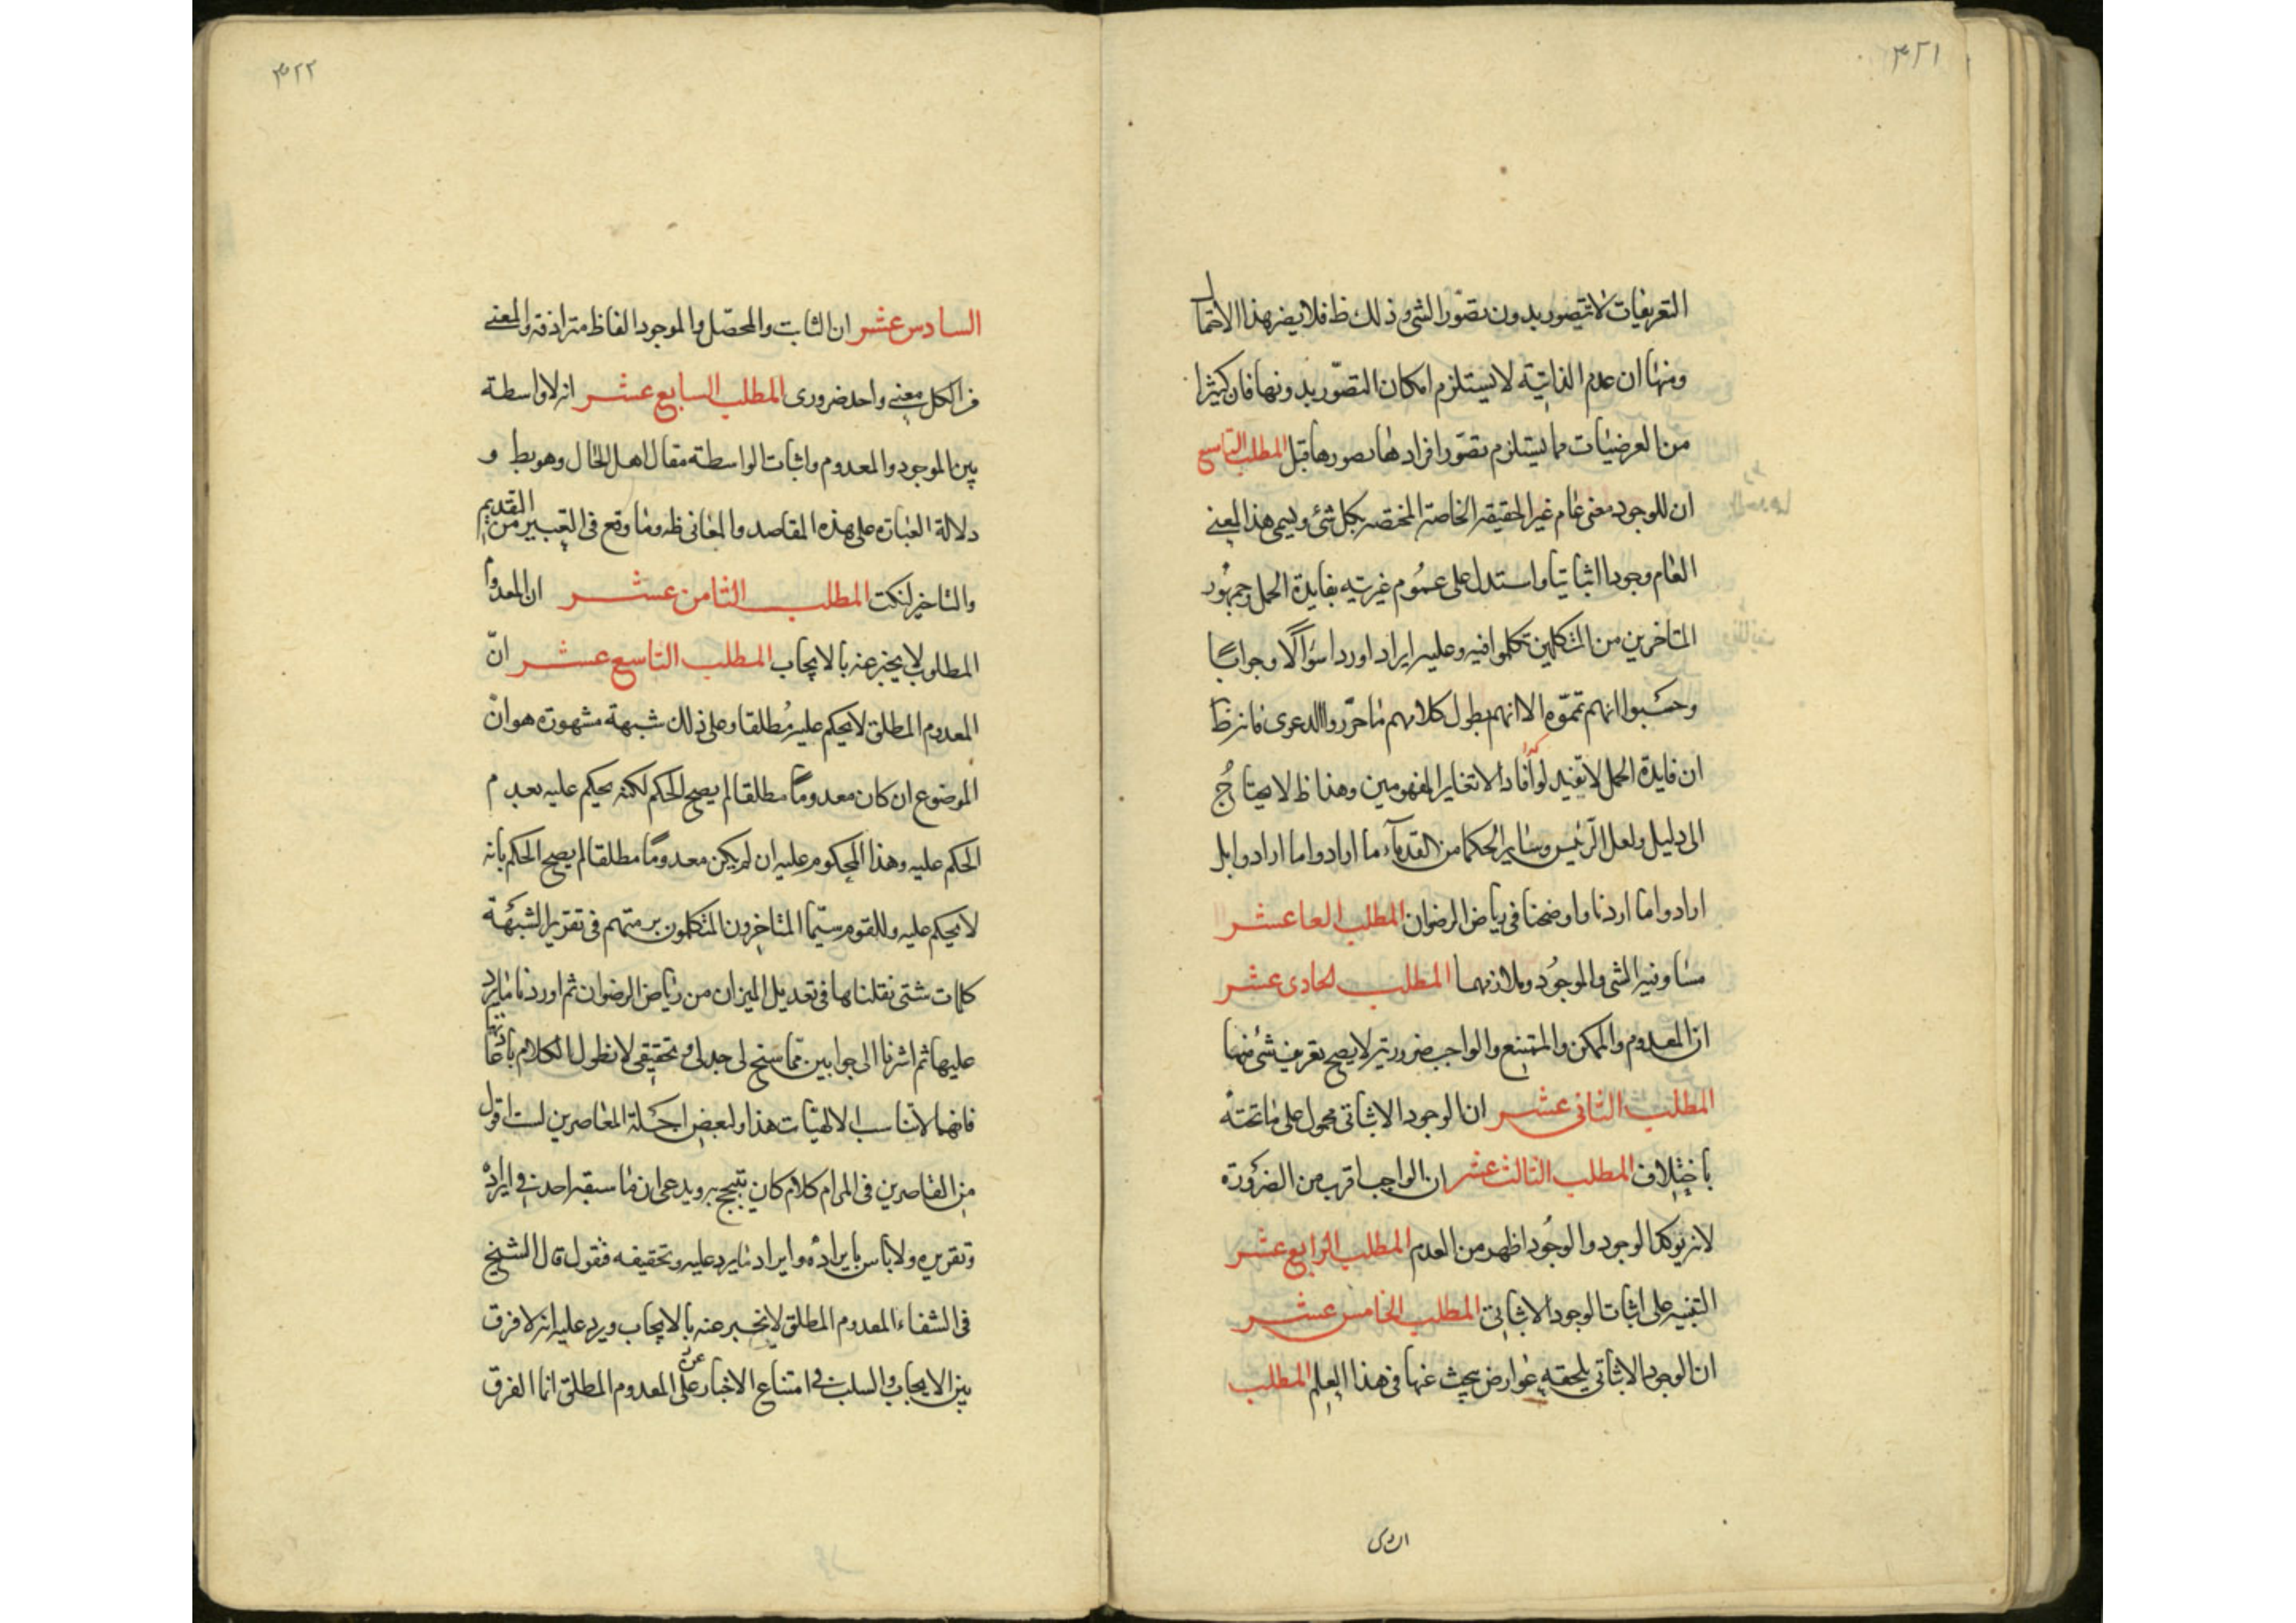 ٣٢١
التعريفات لا يتصور بدون تصوّر الشئ وذلك ظ فلا يضر هذا الاحتمال
ومنها ان عدم الذاتيّة لا يستلزم امكان التصّور بدونها فان كثيرا
من العرضيات مما يستلزم تصّور افرادها تصورها قبل المطلب التاسع
ان للوجود معنى عام غير الحقيقة الخاصة المختصة بكل شئ ويسمى هذا المعنى
العام وجودا اثباتيا واستدل على عموم غيريته بفايدة الحمل وجمهور
المتاخرين من المتكلمين تكلموا فيه وعليه ايراد اوردا سؤالا وجوابا
وحسبوا انهم تمموه الا انهم بطول كلامهم ما حرّروا الدعوى فانه ظ
ان فايدة الحمل لا تفيد لو افاد الا تغاير المفهومين وهذا ظ لا يحتاج
الى دليل ولعل الرئيس وساير الحكما من القدمآء ما ارادوا ما ارادوا بل
ارادوا ما اردنا واوضحنا فى رياض الرضوان المطلب العاعشر
مساوقية الشى والموجود وملازمهما المطلب لحادى عشر
ان المعدوم والممكن والممتنع والواجب ضرورية لا يصح تعريف شئ منها
المطلب الثانى عشر ان الوجود الاثباتى محمول على ما تحته
باختلاف المطلب الثالث عشر ان الواجب اقرب من الضرورة
لانه يوكد الوجود والوجود اظهر من العدم المطلب الرابع عشر
التنبيه على اثبات الوجود الاثباتى المطلب الخامس عشر
ان الوجود الاثباتى يلحقه عوارض يبحث عنها فى هذا العلم المطلب
٣٢٢
السادس عشر ان الثابت والمحصّل والموجود الفاظ مترادفة والمعنى
فى الكل معنى واحد ضرورى المطلب السابع عشر انه لا واسطة
بين الموجود والمعدوم واثبات الواسطة مقال اهل الحال وهو بط و
دلالة العبارة على هذه المقاصد والمعانى ظه وما وقع فى التعبير من التقديم
والتاخير لنكت المطلب الثامن عشر ان المعدوم
المطلوب لا يخبر عنه بالايجاب المطلب التاسع عشر انّ
المعدوم المطلق لا يحكم عليه مُطلقا وعلى ذلك شبهة مشهورة هو انّ
الموضوع ان كان معدوما مطلقا لم يصح الحكم لكنه يحكم عليه بعدم
الحكم عليه وهذا المحكوم عليه ان لم يكن معدوما مطلقا لم يصح الحكم بانه
لا يحكم عليه وللقوم سيّما المتاخرون المتكلمون برمتهم فى تقرير الشبهة
كلمات شتى نقلناها فى تعديل الميزان من رياض الرضوان ثم اوردنا ما يرد
عليها ثم اشرنا الى جوابين ممّا سنح لى جدلى وتحقيقى لا نطول الكلام باتيانهما
فانهما لا تناسب الالهيات هذا ولبعض اجلة المعاصرين لست اقول
من القاصرين فى المرام كلام كان يتبجح به ويدعى ان ما سبقه احد فى ايراده
وتقريره ولا باس بايراده وايراد ما يرد عليه وتحقيقه فنقول قال الشيخ
فى الشفاء المعدوم المطلق لا يخبر عنه بالايجاب ويرد عليه انه لا فرق
بين الايجاب والسلب فى امتناع الاخبار على عن المعدوم المطلق انما الفرق